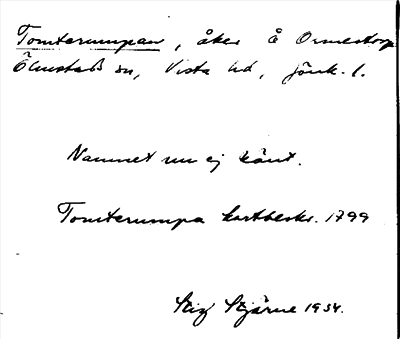 Tomterumpan, åker Å Ormestorp
Ölmstads sn, Vista hd, Jönk. l.
Namnet nu ej känt.
Tomterumpa kartbeskr. 1799
Stig Stjärne 1934.